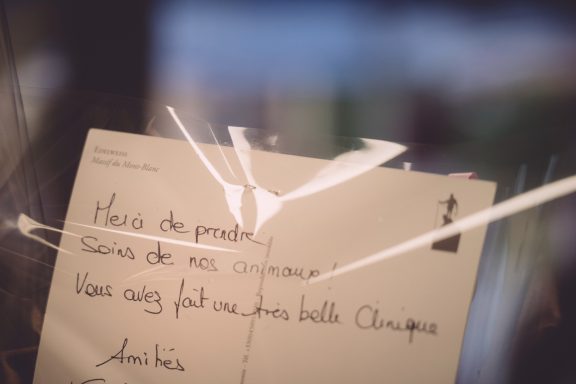 EDELWEISS
Massif du Mont-Blanc
Merci de prendre
Soins de nos animaux !
Vous avez fait une très belle Clinique
Amitiés